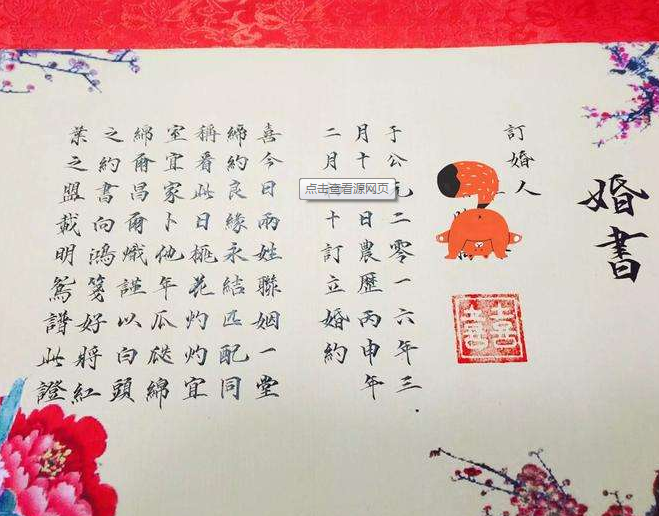 婚書
訂婚人
囍
于公元二零一六年三
月十日農歷丙申年
二月十訂立婚約
喜今日兩姓聯姻一堂
締約良緣永結匹配同
稱看此日桃花灼灼宜
室宜家卜他年瓜瓞綿
綿爾昌爾熾謹以白頭
之約書向鴻箋好將紅
葉之盟載明鴛譜此證
点击查看源网页